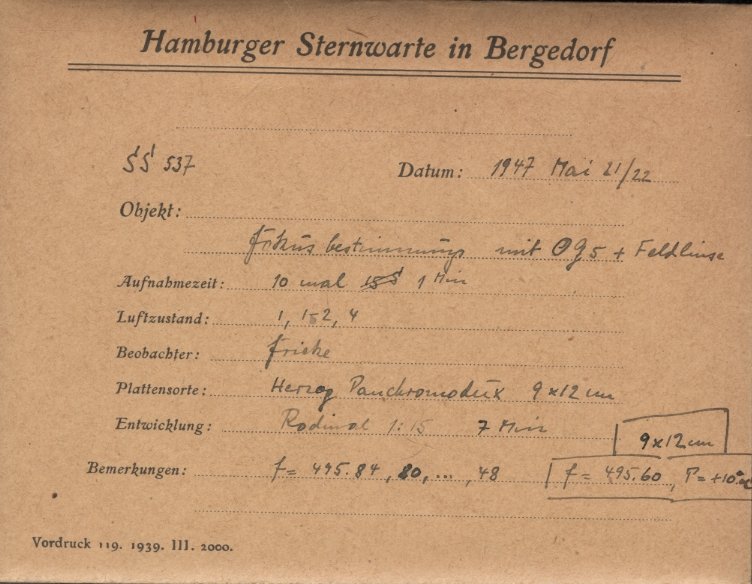 Hamburger Sternwarte in Bergedorf
SS 537 Datum: 1947 Mai 21/22
Objekt:
Fokusbestimmung mit OG5 + Feldlinse
Aufnahmezeit: 10 mal 1 Min
Luftzustand: 1, 1-2, 4
Beobachter: Fricke
Plattensorte: Herzog Panchromodux 9x12 cm
Entwicklung: Rodinal 1:15 7 Min
9x12 cm
Bemerkungen: f = 495.84, 80, ..., 48 f = 495.60, T = +10°
Vordruck 119. 1939. III. 2000.